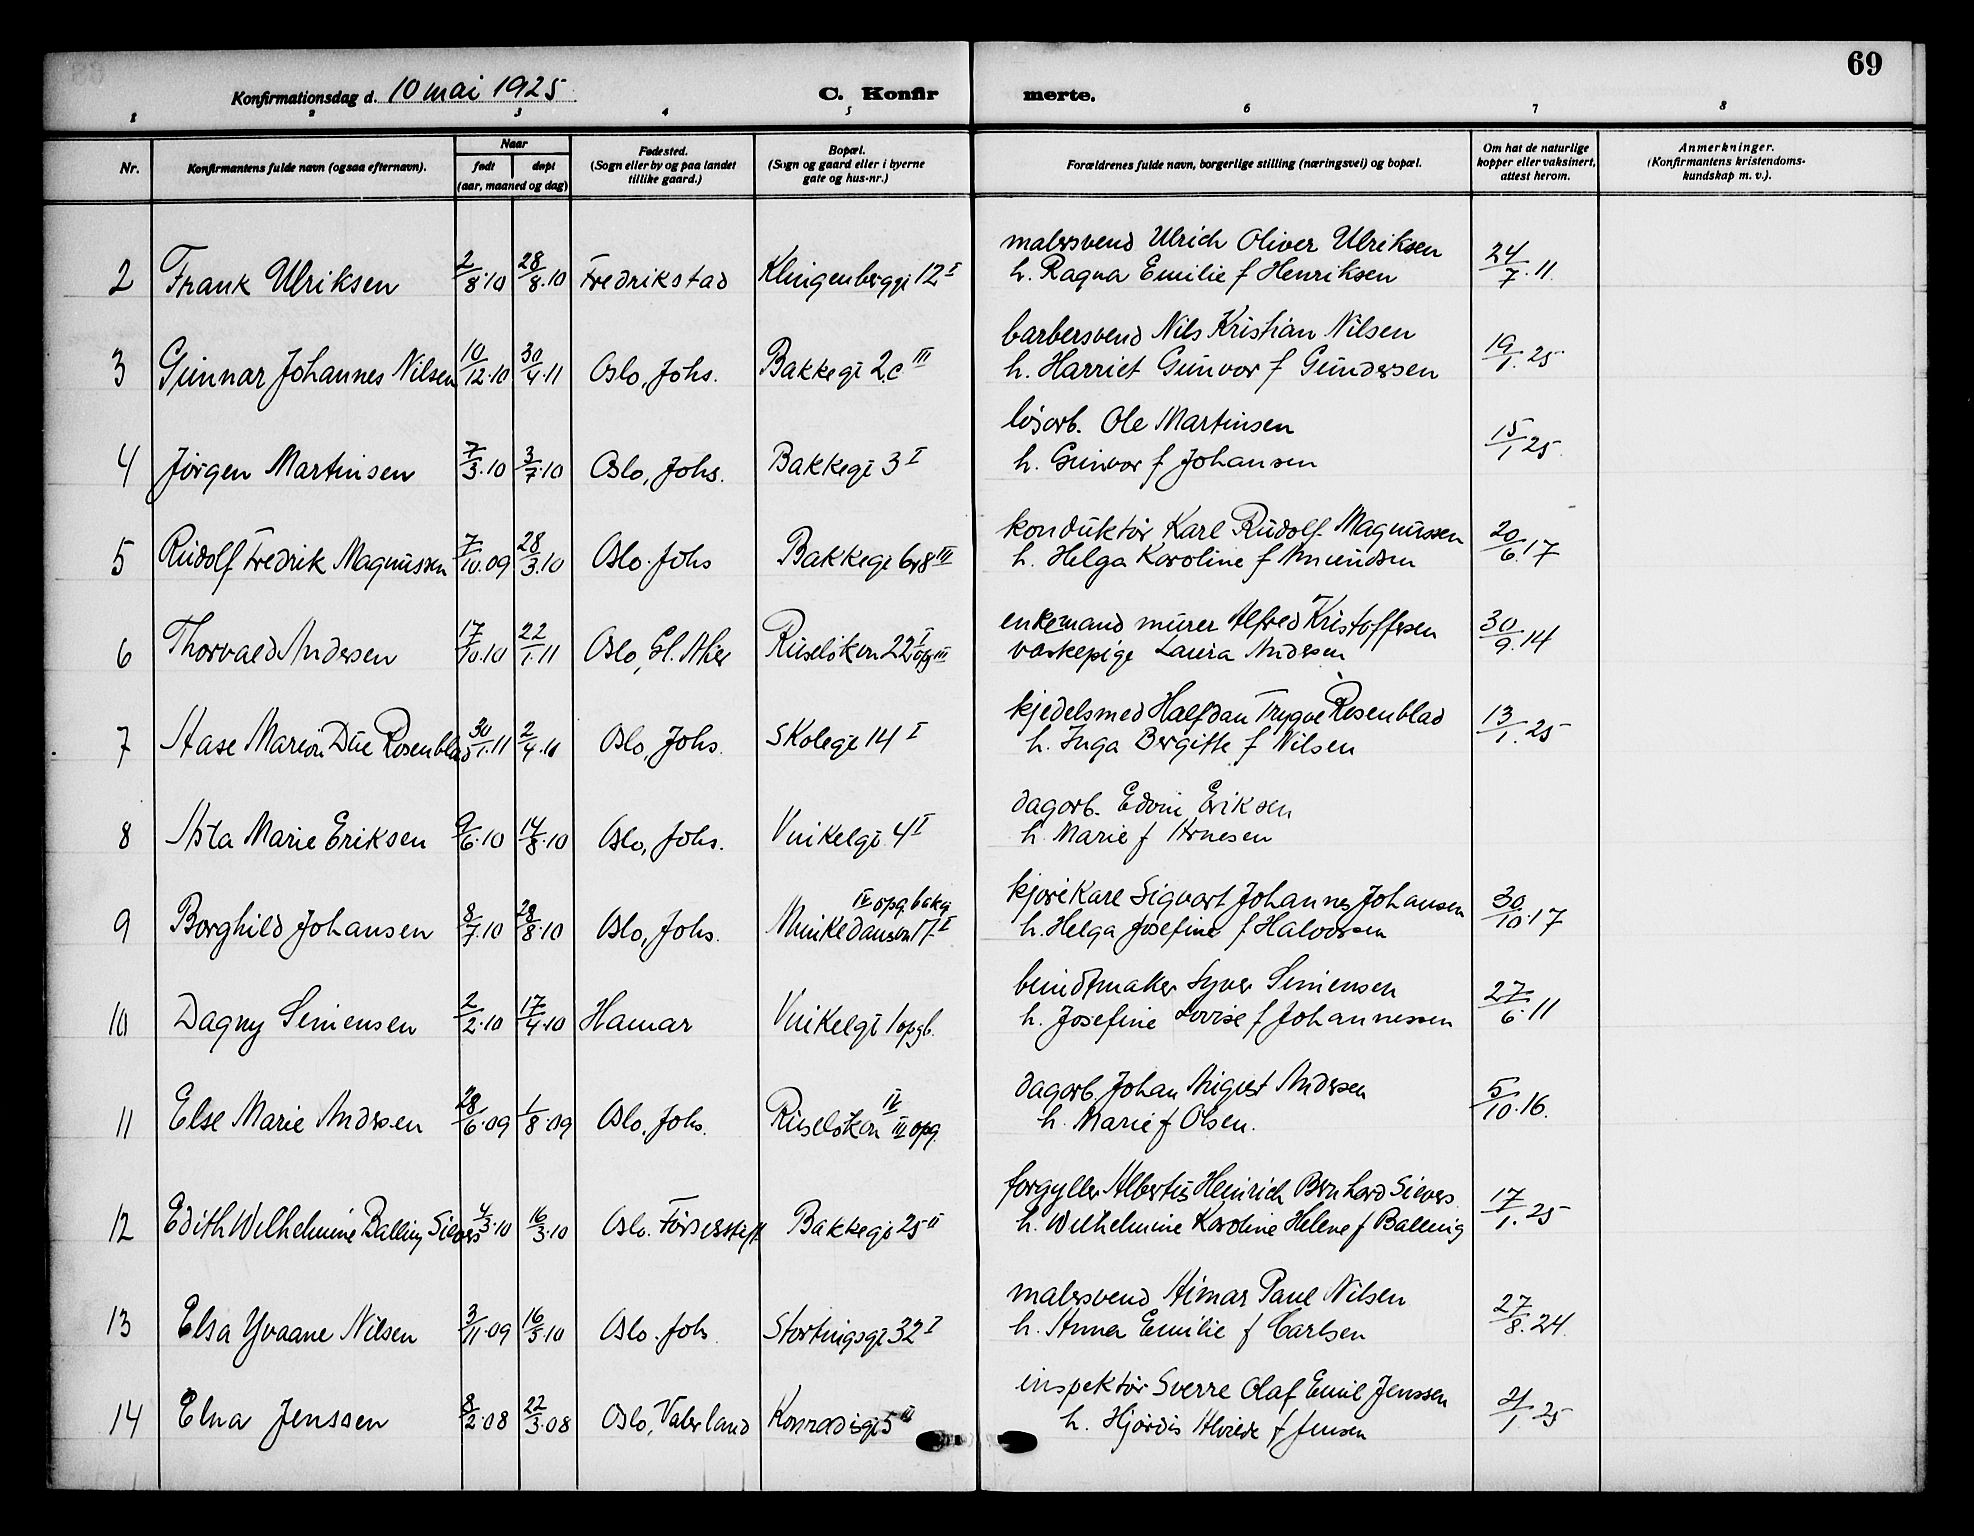 69
Konfirmationsdag d. 10 mai 1925
C. Konfir merte.
1 2 3 4 5 6 7 8
Nr. Konfirmantens fulde navn (ogsaa efternavn). Naar født døpt (aar, maaned og dag) Fødested. (Sogn eller by og paa landet tillike gaard.) Bopæl. (Sogn og gaard eller i byerne gate og hus-nr.) Forældrenes fulde navn, borgerlige stilling (næringsvei) og bopæl. Om hat de naturlige kopper eller vaksinert, attest herom. Anmerkninger. (Konfirmantens kristendoms- kundskap m. v.).
malersvend Ulrich Oliver Ulriksen
2 Frank Ulriksen 2/8.10 28/8.10 Fredrikstad Klingenberggt 12 I h. Ragna Emilie f Henriksen 24/7.11.
barbersvend Nils Kristian Nilsen
3 Gunnar Johannes Nilsen 10/12.10 30/4.11 Oslo, Johs. Bakkegt 2c III h. Harriet Gunvor f Gundersen 19/1.25
løsarb. Ole Martinsen
4 Jörgen Martinsen 7/3.10 3/7.10 Oslo, Johs. Bakkegt 3 I h. Gunvor f Johansen 15/1 25.
konduktör Karl Rudolf Magnussen
5 Rudolf Fredrik Magnussen 7/10.09 28/3.10 Oslo. Johs Bakkegt 6&8 III h. Helga Karoline f Amundsen 20/6.17
enkemand murer Alfred Kristoffersen
6 Thorvald Andersen 17/10.10 22/1.11 Oslo, Gl. Aker Ruseløkvn 22 I opg III vaskepige Laura Andersen 30/9.14
kjedelsmed Halfdan Trygve Rosenblad
7 Aase Marion Due Rosenblad 30/1.11 2/4.11 Oslo, Johs. Skolegt 14 I h. Inga Bergitte f Nilsen 13/1.25
dagarb. Edvin Eriksen
8 Asta Marie Eriksen 9/6.10 14/8.10 Oslo, Johs. Vinkelgt 4 I h. Marie f Arnesen
kjørekarl Sigvart Johannes Johansen
9 Borghild Johansen 8/7.10 28/8.10 Oslo, Johs. Munkedamsvn 17 I IV opg. bakg h. Helga Josefine f Halvorsen 30/10.17
buntmaker Syver Simensen
10 Dagny Simensen 2/2.10 17/4.10 Hamar Vinkelgt 1 opg b. h. Josefine Lovise f Johannessen 27/6.11
dagarb. Johan August Andersen
11 Else Marie Andersen 28/6.09 1/8.09 Oslo. Johs. Ruseløkvn IV III opg. h. Marie f Olsen. 5/10.16.
forgyller Albertus Heinrich Bernhard Sievers
12 Edith Wilhelmine Balling Sievers 4/3.10 16/3.10 Oslo. Födselsstift Bakkegt 25 II h. Wilhelmine Karoline Helene f Balling 17/1.25
malersvend Aimar Paul Nilsen
13 Elsa Yvaane Nilsen 3/11.09 16/5.10 Oslo. Johs Stortingsgt 32 I h. Anna Emilie f Carlsen 27/8.24.
inspektör Sverre Olaf Emil Jenssen
14 Elna Jenssen 8/2.08 22/3.08 Oslo, Vaterland Konradisgt 5 III h. Hjördis Alvilde f Jensen 21/1 25